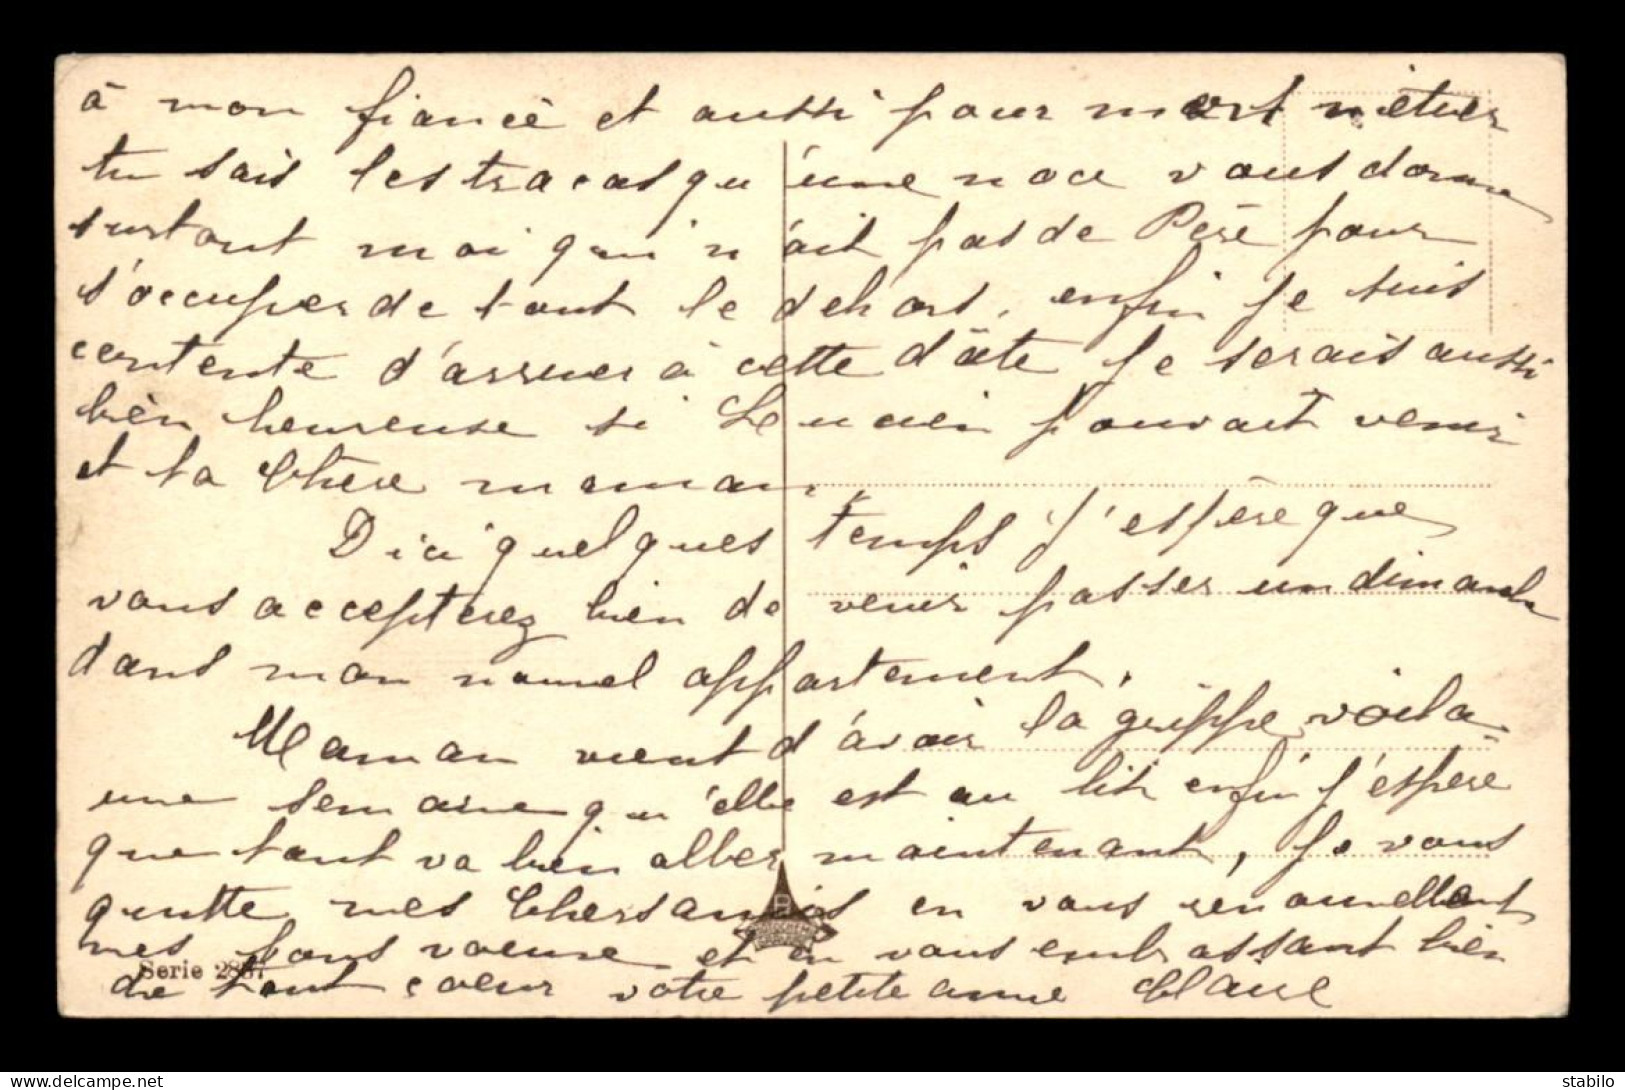 à mon fiancé et aussi pour mort mêtier
tu sais les tracas qu'une noce vous donne
surtout moi qui n'ait pas de Père pour
s'occuper de tout le dehors, enfin je suis
contente d'arriver à cette dâte je serais aussi
bièn heureuse si Lucien pouvait venir
et ta Chère maman.
D'ici quelques temps j'espère que
vous accepterez bien de venir passer un dimanche
dans mon nouvel appartement.
Maman vient d'avoir la grippe, voila
une semaine qu'elle est au lit enfin j'espère
que tout va bien aller maintenant, je vous
quitte mes Chers amis en vous renouvellent
mes bons voeux et en vous embrassant bièn
Serie 2867
de tout coeur votre petite amie Claire
stabilo
www.delcampe.net